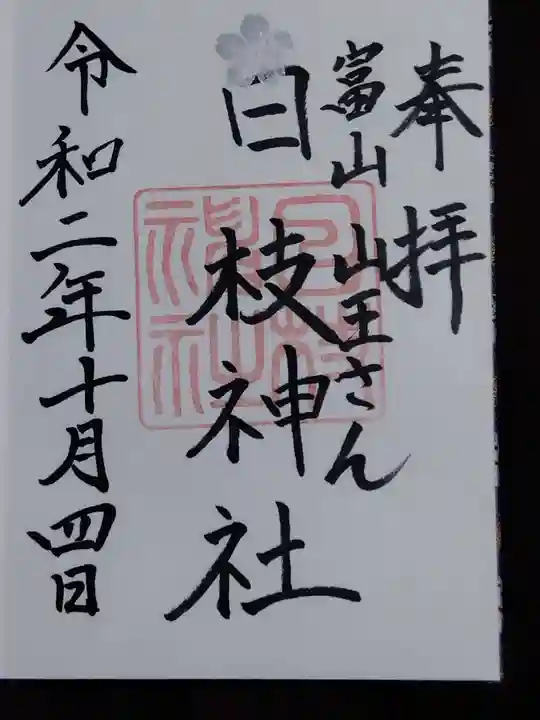 奉拝
富山山王さん
日枝神社
令和二年十月四日
日枝神社